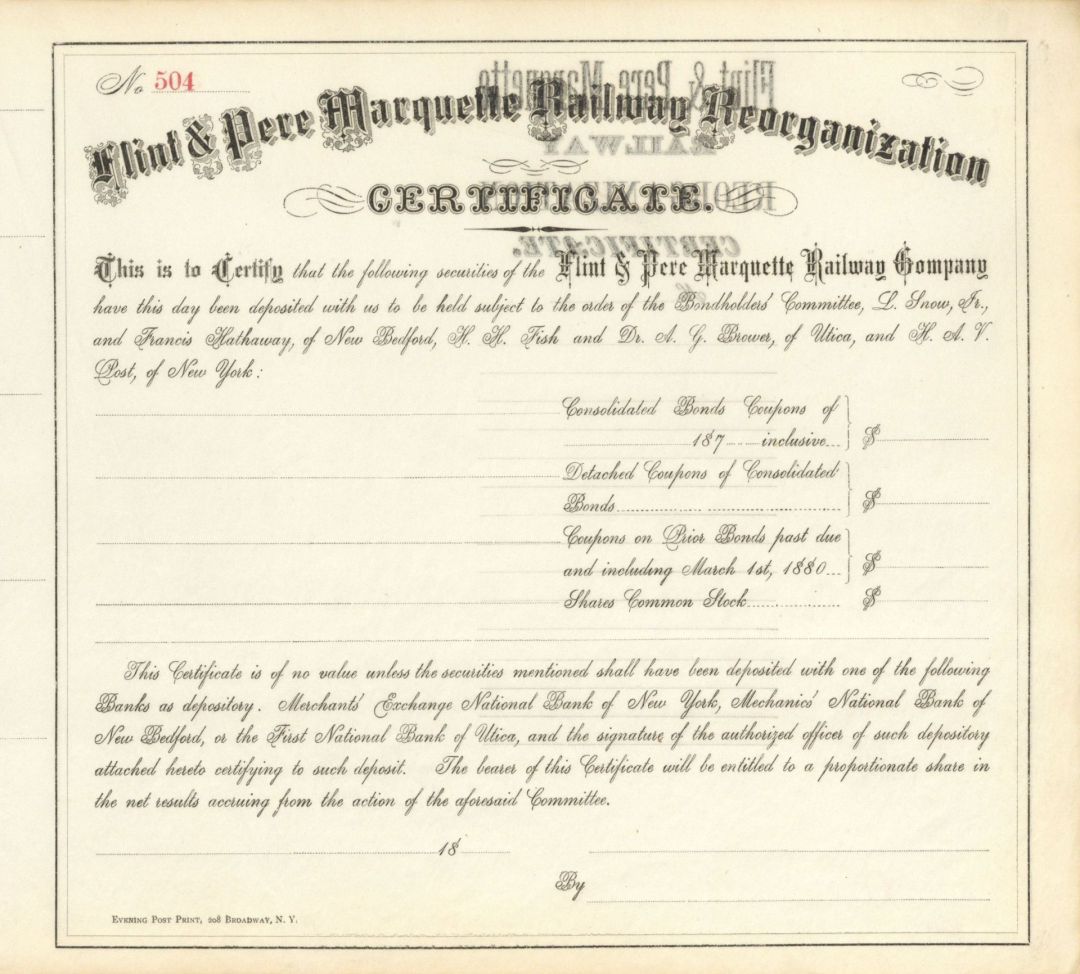 No 504
Flint & Pere Marquette Railway Reorganization
CERTIFICATE.
This is to Certify that the following securities of the Flint & Pere Marquette Railway Company
have this day been deposited with us to be held subject to the order of the Bondholders' Committee, L. Snow, Jr.,
and Francis Hathaway, of New Bedford, H. H. Fish and Dr. A. G. Brower, of Utica, and H. A. V.
Post, of New York:
Consolidated Bonds Coupons of
187 inclusive $
Detached Coupons of Consolidated
Bonds $
Coupons on Prior Bonds past due
and including March 1st, 1880 $
Shares Common Stock $
This Certificate is of no value unless the securities mentioned shall have been deposited with one of the following
Banks as depository. Merchants' Exchange National Bank of New York, Mechanics' National Bank of
New Bedford, or the First National Bank of Utica, and the signature of the authorized officer of such depository
attached hereto certifying to such deposit. The bearer of this Certificate will be entitled to a proportionate share in
the net results accruing from the action of the aforesaid Committee.
18
By
EVENING POST PRINT, 208 BROADWAY, N. Y.